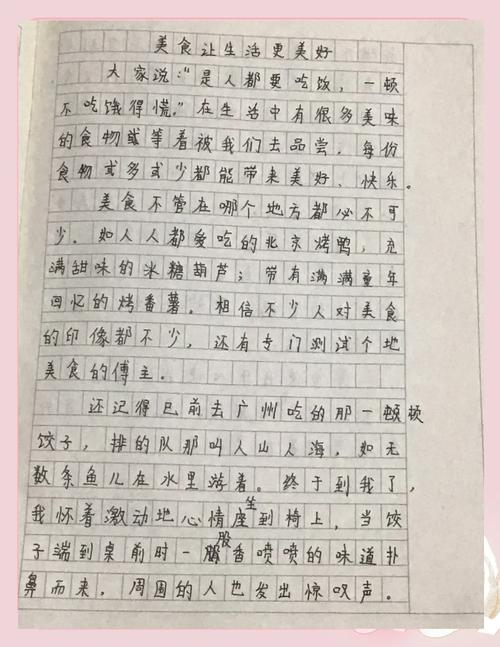 美食让生活更美好
大家说:“是人都要吃饭,一顿
不吃饿得慌。”在生活中有很多美味
的食物或等着被我们去品尝,每份
食物或多或少都能带来美好、快乐。
美食不管在哪个地方都必不可
少。如人人都爱吃的北京烤鸭,充
满甜味的冰糖葫芦;带有满满童年
回忆的烤番薯。相信不少人对美食
的印像都不少,还有专门测试个地
美食的傅主。
还记得已前去广州吃的那一顿顿
饺子,排的队那叫人山人海,如无
数条鱼儿在水里游着。终于到我了,
我怀着激动地心情座坐到椅上,当饺
子端到桌前时一股香喷喷的味道扑
鼻而来,周围的人也发出惊叹声。